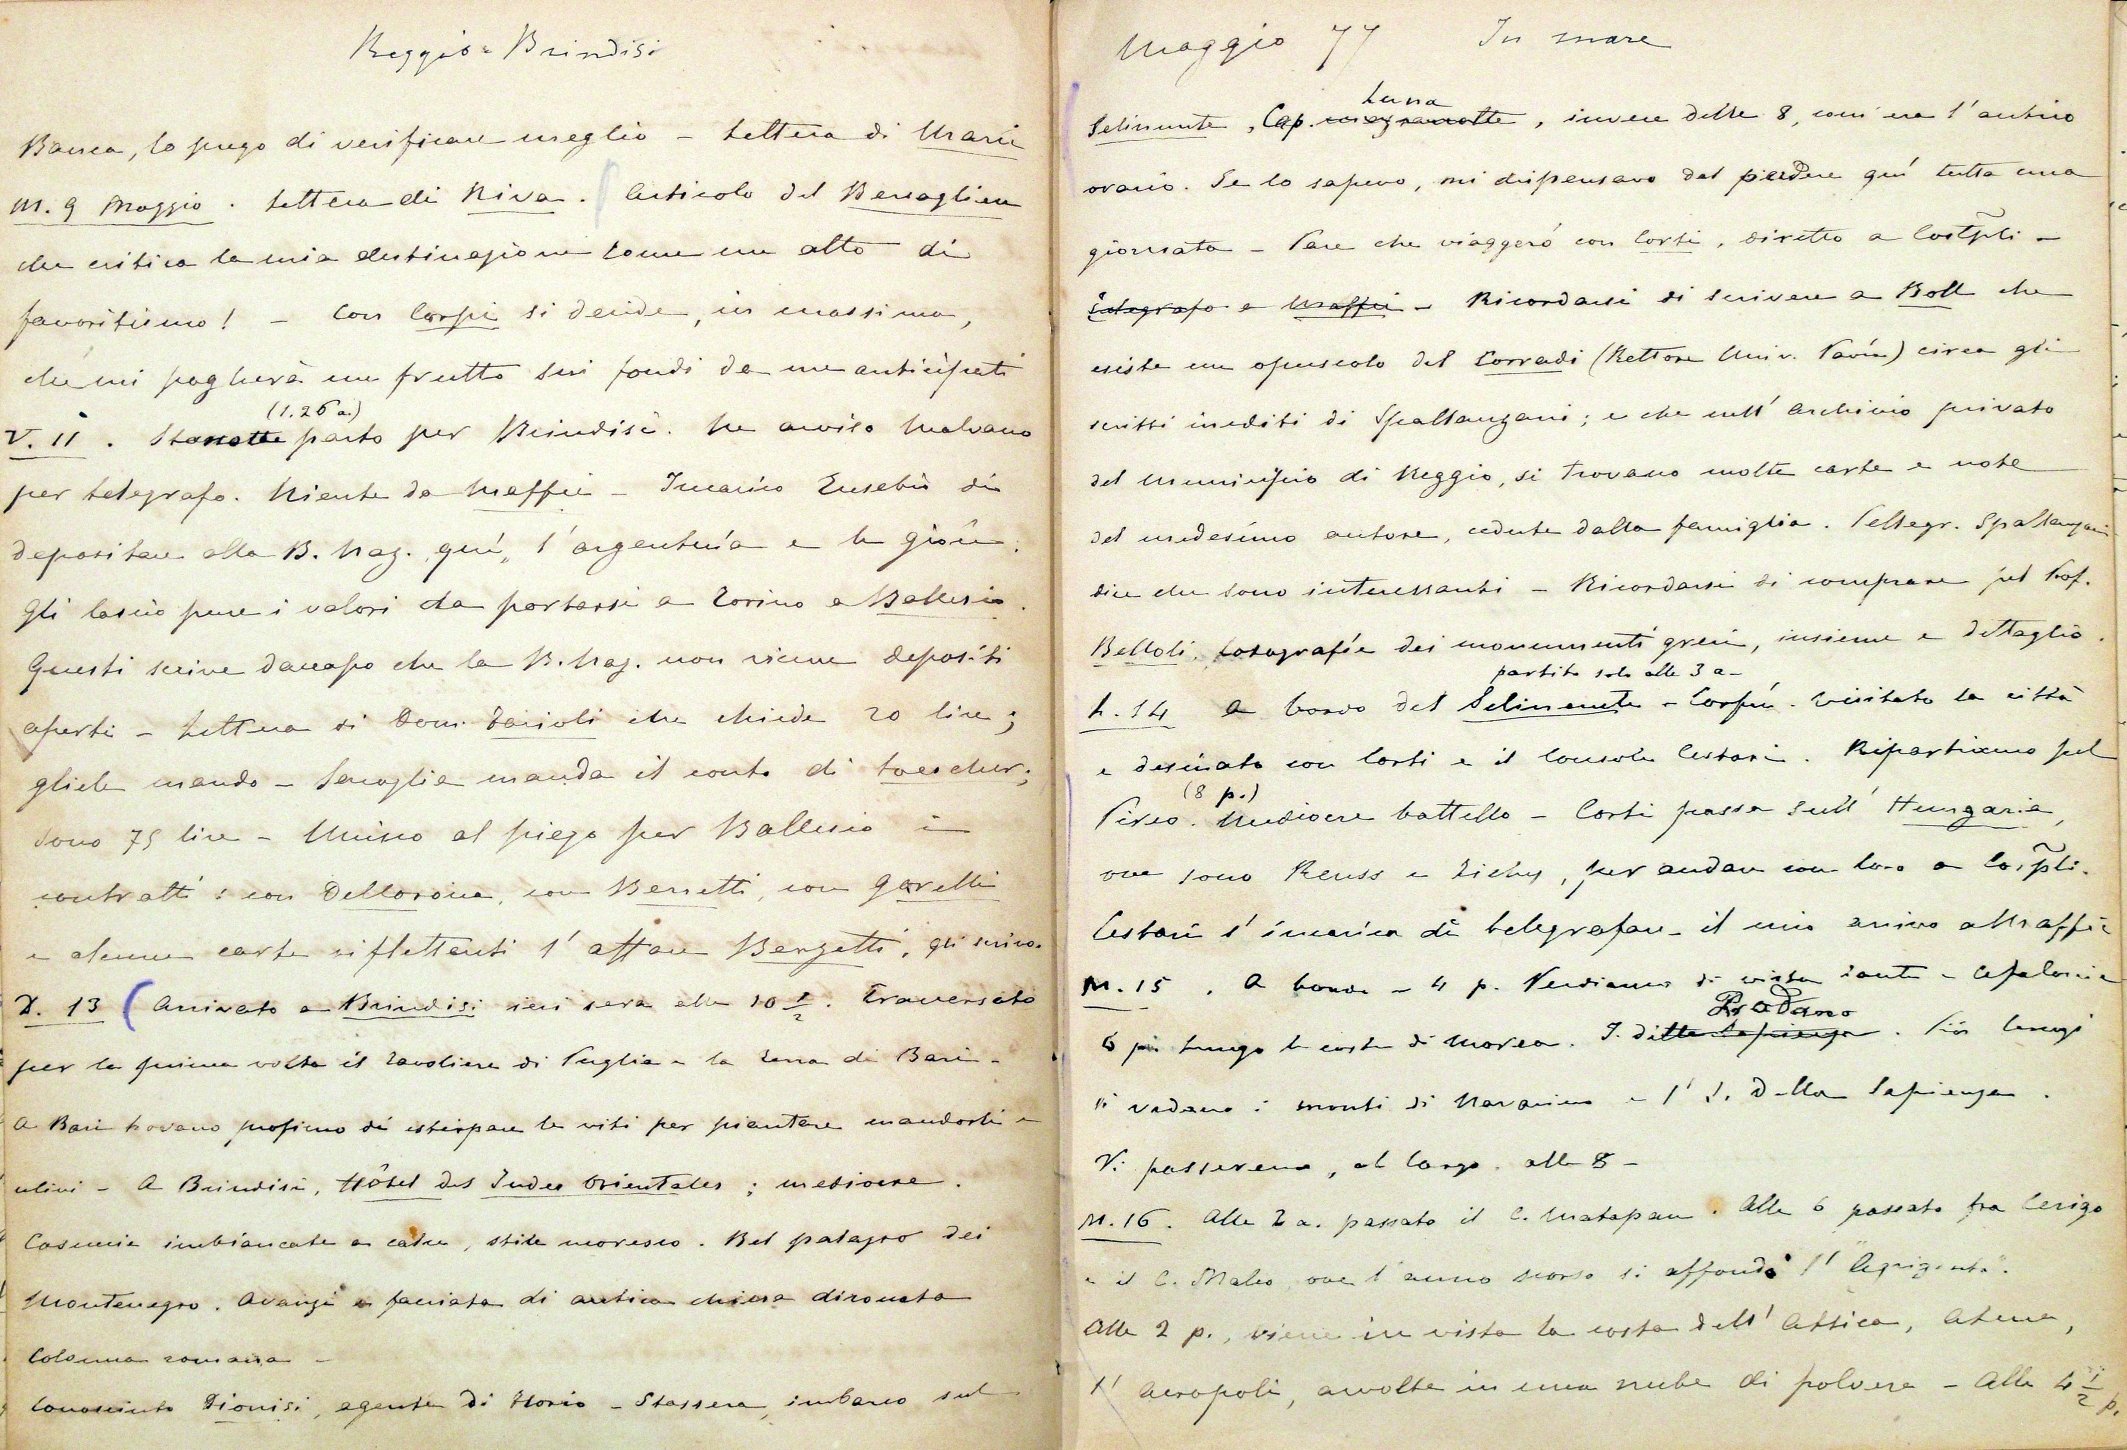 Reggio - Brindisi
Banca, lo prego di verificare meglio - Lettera di Marii
M. 9 Maggio. Lettera di Riva. Articolo del Bersagliere
che critica la mia destinazione come un atto di
favoritismo! - Con Carpi si decide, in massima,
che mi pagherà un frutto sui fondi da me anticipati
(1.26 a.)
V. 11. Stanotte parto per Brindisi. Ne avviso Malvano
per telegrafo. Niente da Maffei - Incarico Eusebio di
depositare alla B. Naz. qui, l'argenteria e le gioie.
Gli lascio pure i valori da portarsi a Torino a Ballesio.
Questi scrive daccapo che la B. Naz. non riceve depositi
aperti - Lettera di Dom. che chiede 20 lire;
gliele mando - manda il conto di
sono 75 lire - Unisco al piego per Ballesio i
contratti: con Dellarosa, con Berretti, con Gorelli
e alcune carte riflettenti l'affare Berzetti, gli scrivo.
D. 13 (Arrivato a Brindisi ieri sera alle 10 1/2. Traversato
per la prima volta il Tavoliere di Puglia e la Terra di Bari -
A Bari trovano proficuo di estirpare le viti per piantare mandorli e
ulivi - A Brindisi, Hôtel des Indes Orientales; mediocre.
Casuccie imbiancate a calce, stile moresco. Bel palazzo dei
Montenegro. Avanzi e facciata di antica chiesa diroccata
Colonna romana -
Conosciuto Dionisi, agente di Florio - Stassera, imbarco sul
Maggio 77 In mare
Luna
Selinunte, Cap. , invece delle 8, com'era l'antico
orario. Se lo sapevo, mi dispensavo dal perdere quì tutta una
giornata - Pare che viaggerò con Corti, diretto a Costpli -
Telegrafo a Maffei - Ricordarsi di scrivere a Boll che
esiste un opuscolo del Corradi (Rettore Univ. Pavia) circa gli
scritti inediti di Spallanzani; e che nell'archivio privato
del Municipio di Reggio, si trovano molte carte e note
del medesimo autore, cedute dalla famiglia. Pellegr. Spallanzani
dice che sono interessanti - Ricordarsi di comprare pel Prof.
Belloli, fotografie dei monumenti greci, insieme e dettaglio.
partito solo alle 3 a -
L. 14 A bordo del Selinunte - Corfù. Visitato la città
e desinato con Corti e il Console Cestari. Ripartiamo pel
(8 p.)
Pireo. Mediocre battello - Corti passa sull'Hungaria,
ove sono Reuss e Zichy, per andare con loro a Cospli.
Cestari s'incarica di telegrafare il mio arrivo a Maffei
M. 15. A bordo - 4 p. Vediamo di vista Zante e Cefalonia
Prodano
6 p. lungo le coste di Morea. I. della Sapienza. Più lungi
si vedano i monti di Navarino e l'I. della Sapienza.
Vi passeremo, al largo, alle 8 -
M. 16. Alle 2 a. passato il C. Matapan. Alle 6 passato fra Cerigo
e il C. Maleo, ove l'anno scorso si affondò l'"Agrigento".
Alle 2 p., viene in vista la costa dell'Attica, Atene,
l'Acropoli, avvolte in una nube di polvere - Alle 4 1/2 p.